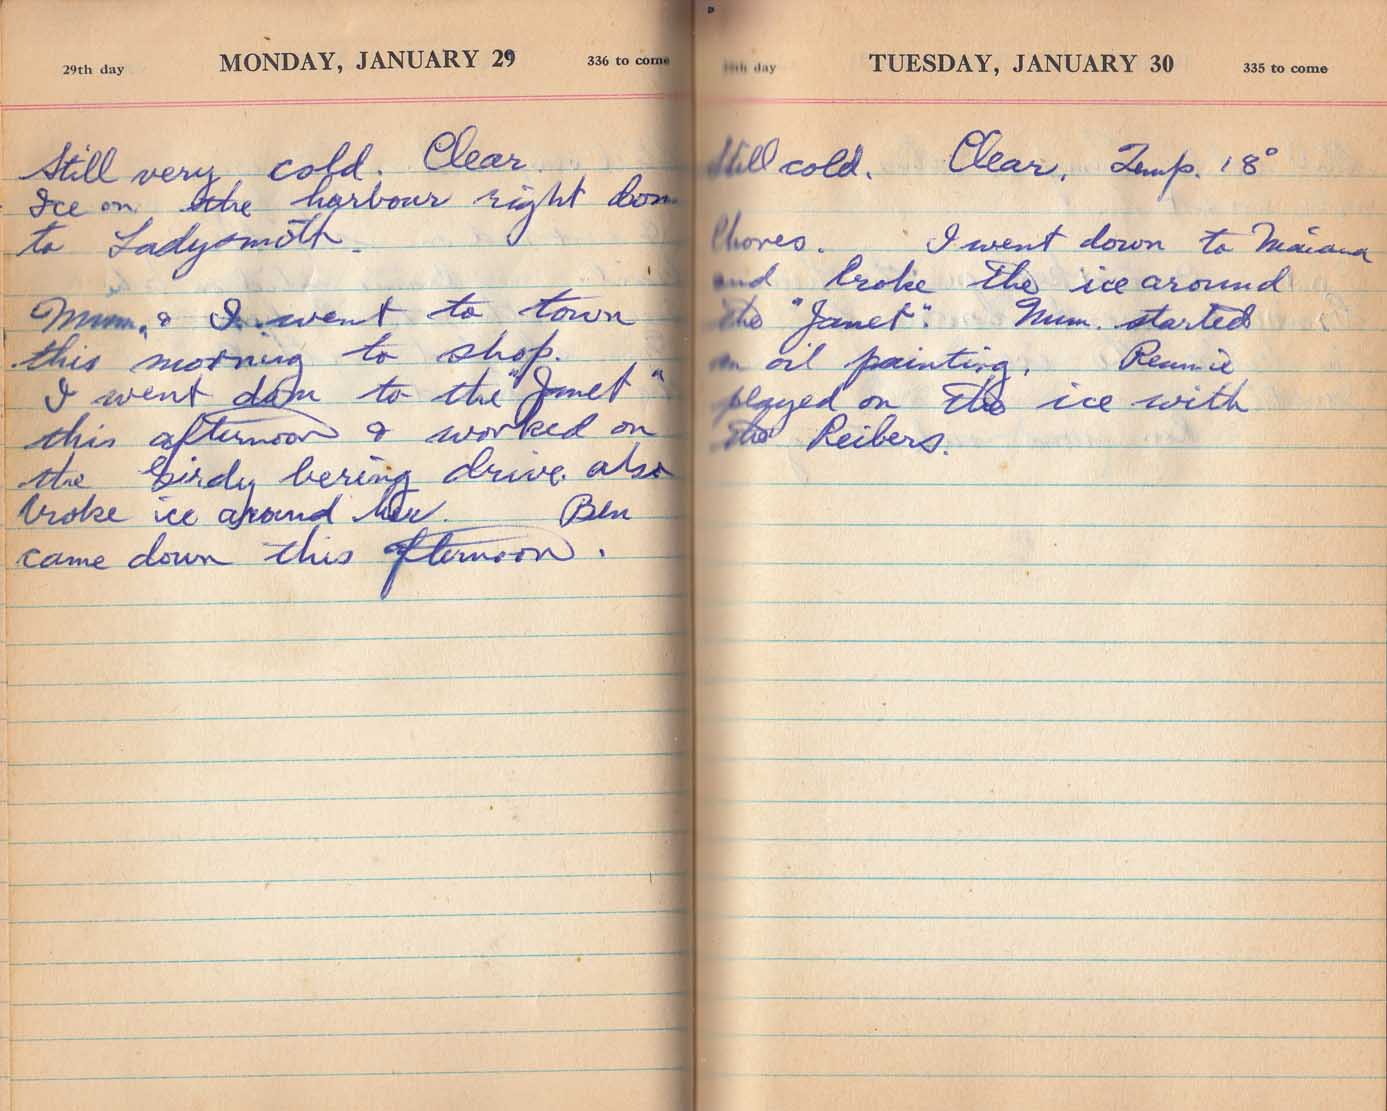 29th day MONDAY, JANUARY 29 336 to come
Still very cold. Clear.
Ice on the harbour right down
to Ladysmith.
Mum & I went to town
this morning to shop.
I went down to the "Janet"
this afternoon & worked on
the Girdy bering drive. also
broke ice around her. Ben
came down this afternoon.
30th day TUESDAY, JANUARY 30 335 to come
Still cold. Clear. Temp. 18°
Chores. I went down to
and broke the ice around
the "Janet". Mum. started
an oil painting. Rennie
played on the ice with
the Reibers.